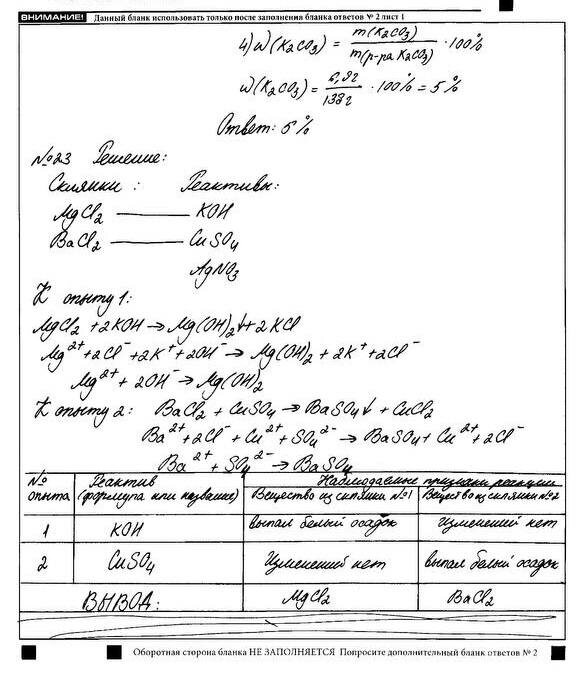 ВНИМАНИЕ! Данный бланк использовать только после заполнения бланка ответов № 2 лист 1
4) ω(K2CO3) = m(K2CO3) / m(р-ра K2CO3) · 100%
ω(K2CO3) = 6,9г / 138г · 100% = 5%
Ответ: 5%
№23 Решение:
Склянки: Реактивы:
MgCl2 — KOH
BaCl2 — CuSO4
AgNO3
К опыту 1:
MgCl2 + 2KOH → Mg(OH)2↓ + 2KCl
Mg²⁺ + 2Cl⁻ + 2K⁺ + 2OH⁻ → Mg(OH)2 + 2K⁺ + 2Cl⁻
Mg²⁺ + 2OH⁻ → Mg(OH)2
К опыту 2: BaCl2 + CuSO4 → BaSO4↓ + CuCl2
Ba²⁺ + 2Cl⁻ + Cu²⁺ + SO4²⁻ → BaSO4 + Cu²⁺ + 2Cl⁻
Ba²⁺ + SO4²⁻ → BaSO4
№ опыта Реактив (формула или название) Наблюдаемые признаки реакции
Вещество из склянки №1 Вещество из склянки №2
1 KOH выпал белый осадок Изменений нет
2 CuSO4 Изменений нет выпал белый осадок
ВЫВОД: MgCl2 BaCl2
Оборотная сторона бланка НЕ ЗАПОЛНЯЕТСЯ Попросите дополнительный бланк ответов № 2